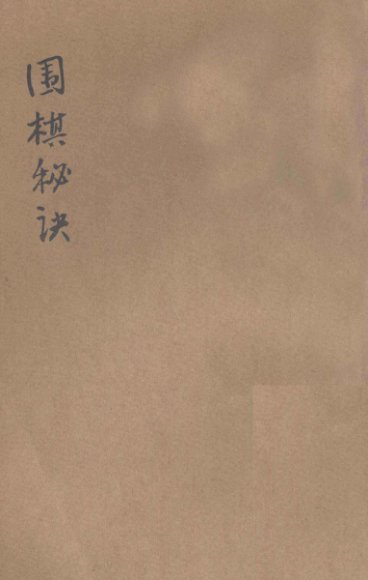 围棋秘诀